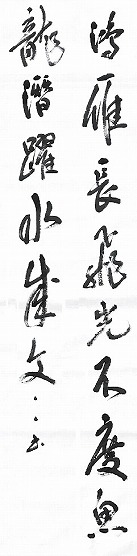 鴻雁長飛光不度魚
龍潛躍水成文